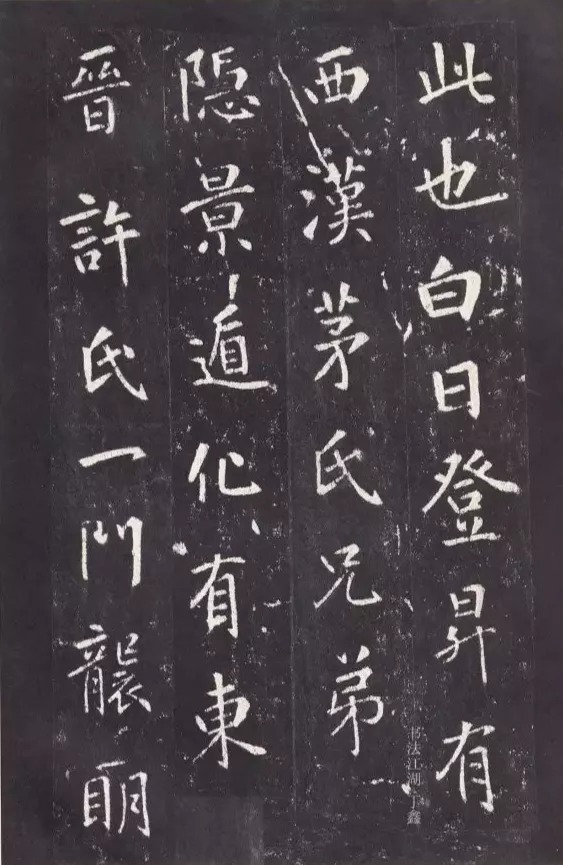 此也白日登昇有
西漢茅氏兄弟
隱景遁化有東
晉許氏一門龔朙
书法江湖 丁鑫